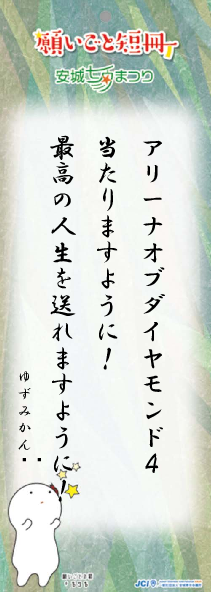 願いごと短冊
安城七夕まつり
アリーナオブダイヤモンド4
当たりますように!
最高の人生を送れますように!
ゆずみかん
JCI